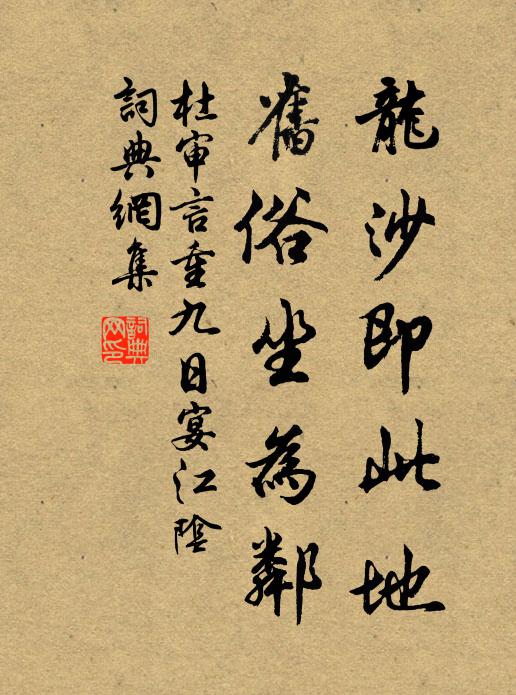 龍沙即此地
舊俗坐為鄰
杜審言重九日宴江陰
詞典網集
詞典網印